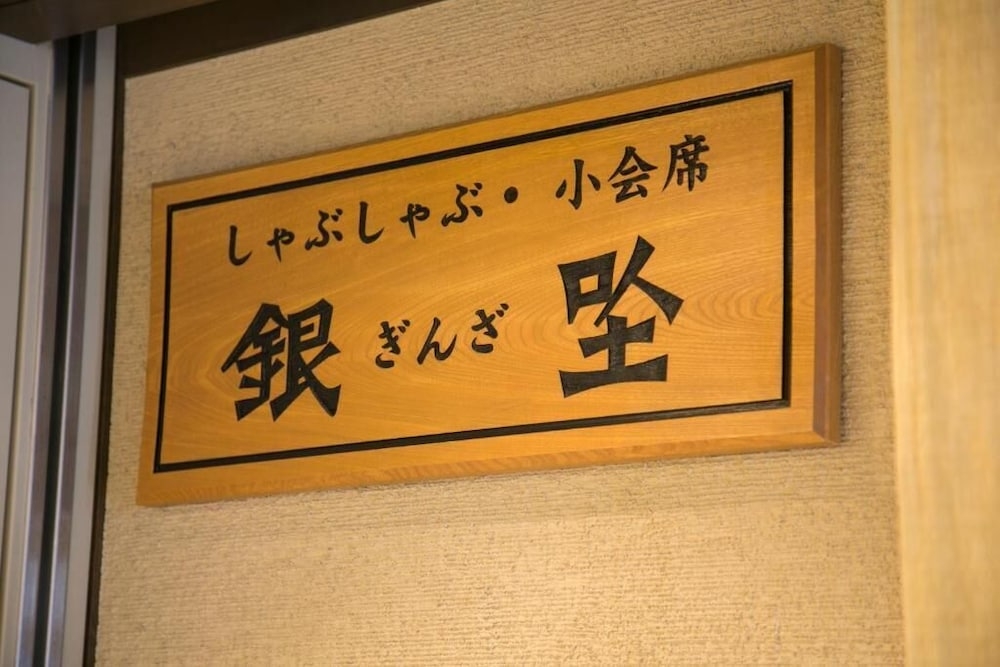 しゃぶしゃぶ・小会席
銀 ぎんざ 坐